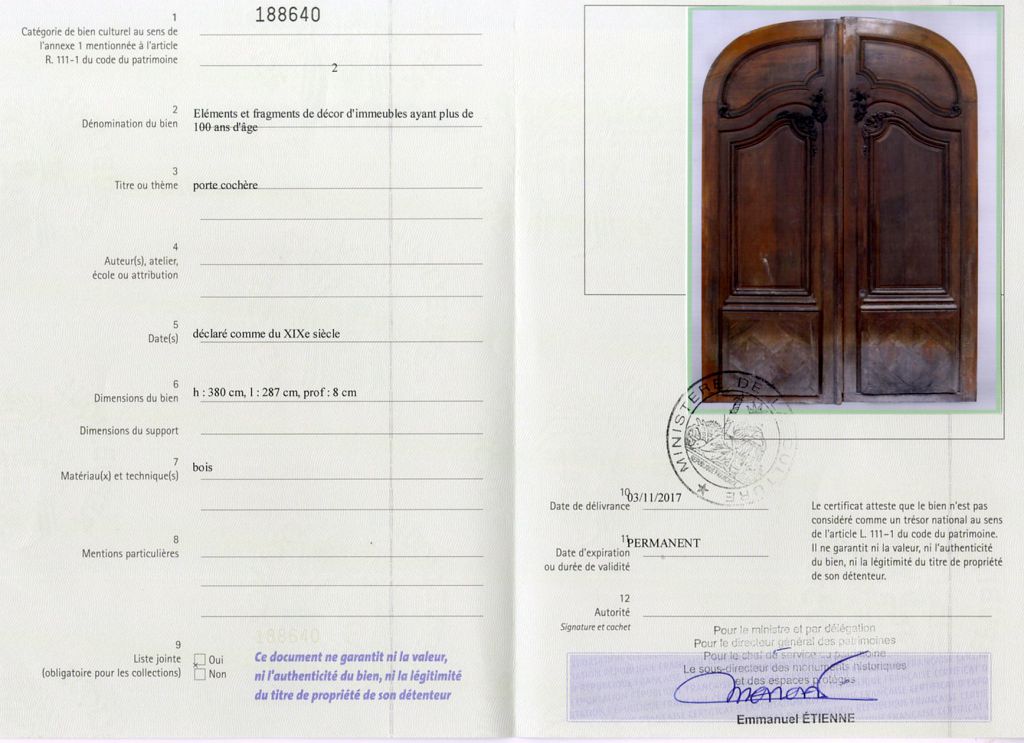 188640
1
Catégorie de bien culturel au sens de
l'annexe 1 mentionnée à l'article
R. 111-1 du code du patrimoine
2
2
Dénomination du bien
Eléments et fragments de décor d'immeubles ayant plus de
100 ans d'âge
3
Titre ou thème
porte cochère
4
Auteur(s), atelier,
école ou attribution
5
Date(s)
déclaré comme du XIXe siècle
6
Dimensions du bien
h : 380 cm, l : 287 cm, prof : 8 cm
Dimensions du support
7
Matériau(x) et technique(s)
bois
8
Mentions particulières
9
Liste jointe
(obligatoire pour les collections)
Oui
x
Non
188640
Ce document ne garantit ni la valeur,
ni l'authenticité du bien, ni la légitimité
du titre de propriété de son détenteur
MINISTERE DE L CULTURE
10
Date de délivrance
03/11/2017
11
Date d'expiration
ou durée de validité
PERMANENT
Le certificat atteste que le bien n'est pas
considéré comme un trésor national au sens
de l'article L. 111-1 du code du patrimoine.
Il ne garantit ni la valeur, ni l'authenticité
du bien, ni la légitimité du titre de propriété
de son détenteur.
12
Autorité
Signature et cachet
Pour le ministre et par délégation
Pour le directeur général des patrimoines
Pour le chef de service du patrimoine
Le sous-directeur des monuments historiques
et des espaces protégés
Emmanuel ÉTIENNE